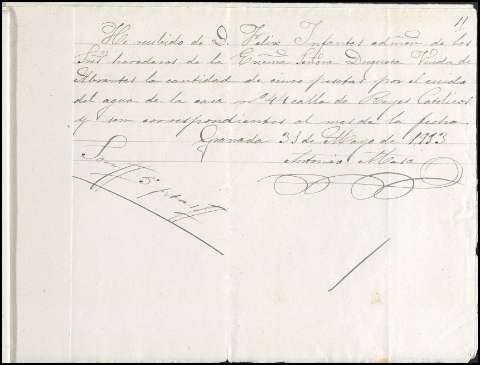 11
He recibido de D. Felix Infantes admón de los
Sres herederos de la Excma Señora Duquesa Viuda de
Abrantes la cantidad de cinco pesetas por el cuido
del agua de la casa nº 44 calle de Reyes Católicos
y son correspondientes al mes de la fecha
Granada 31 de Mayo de 1913
Antonio Mesa
Son 5 ptas